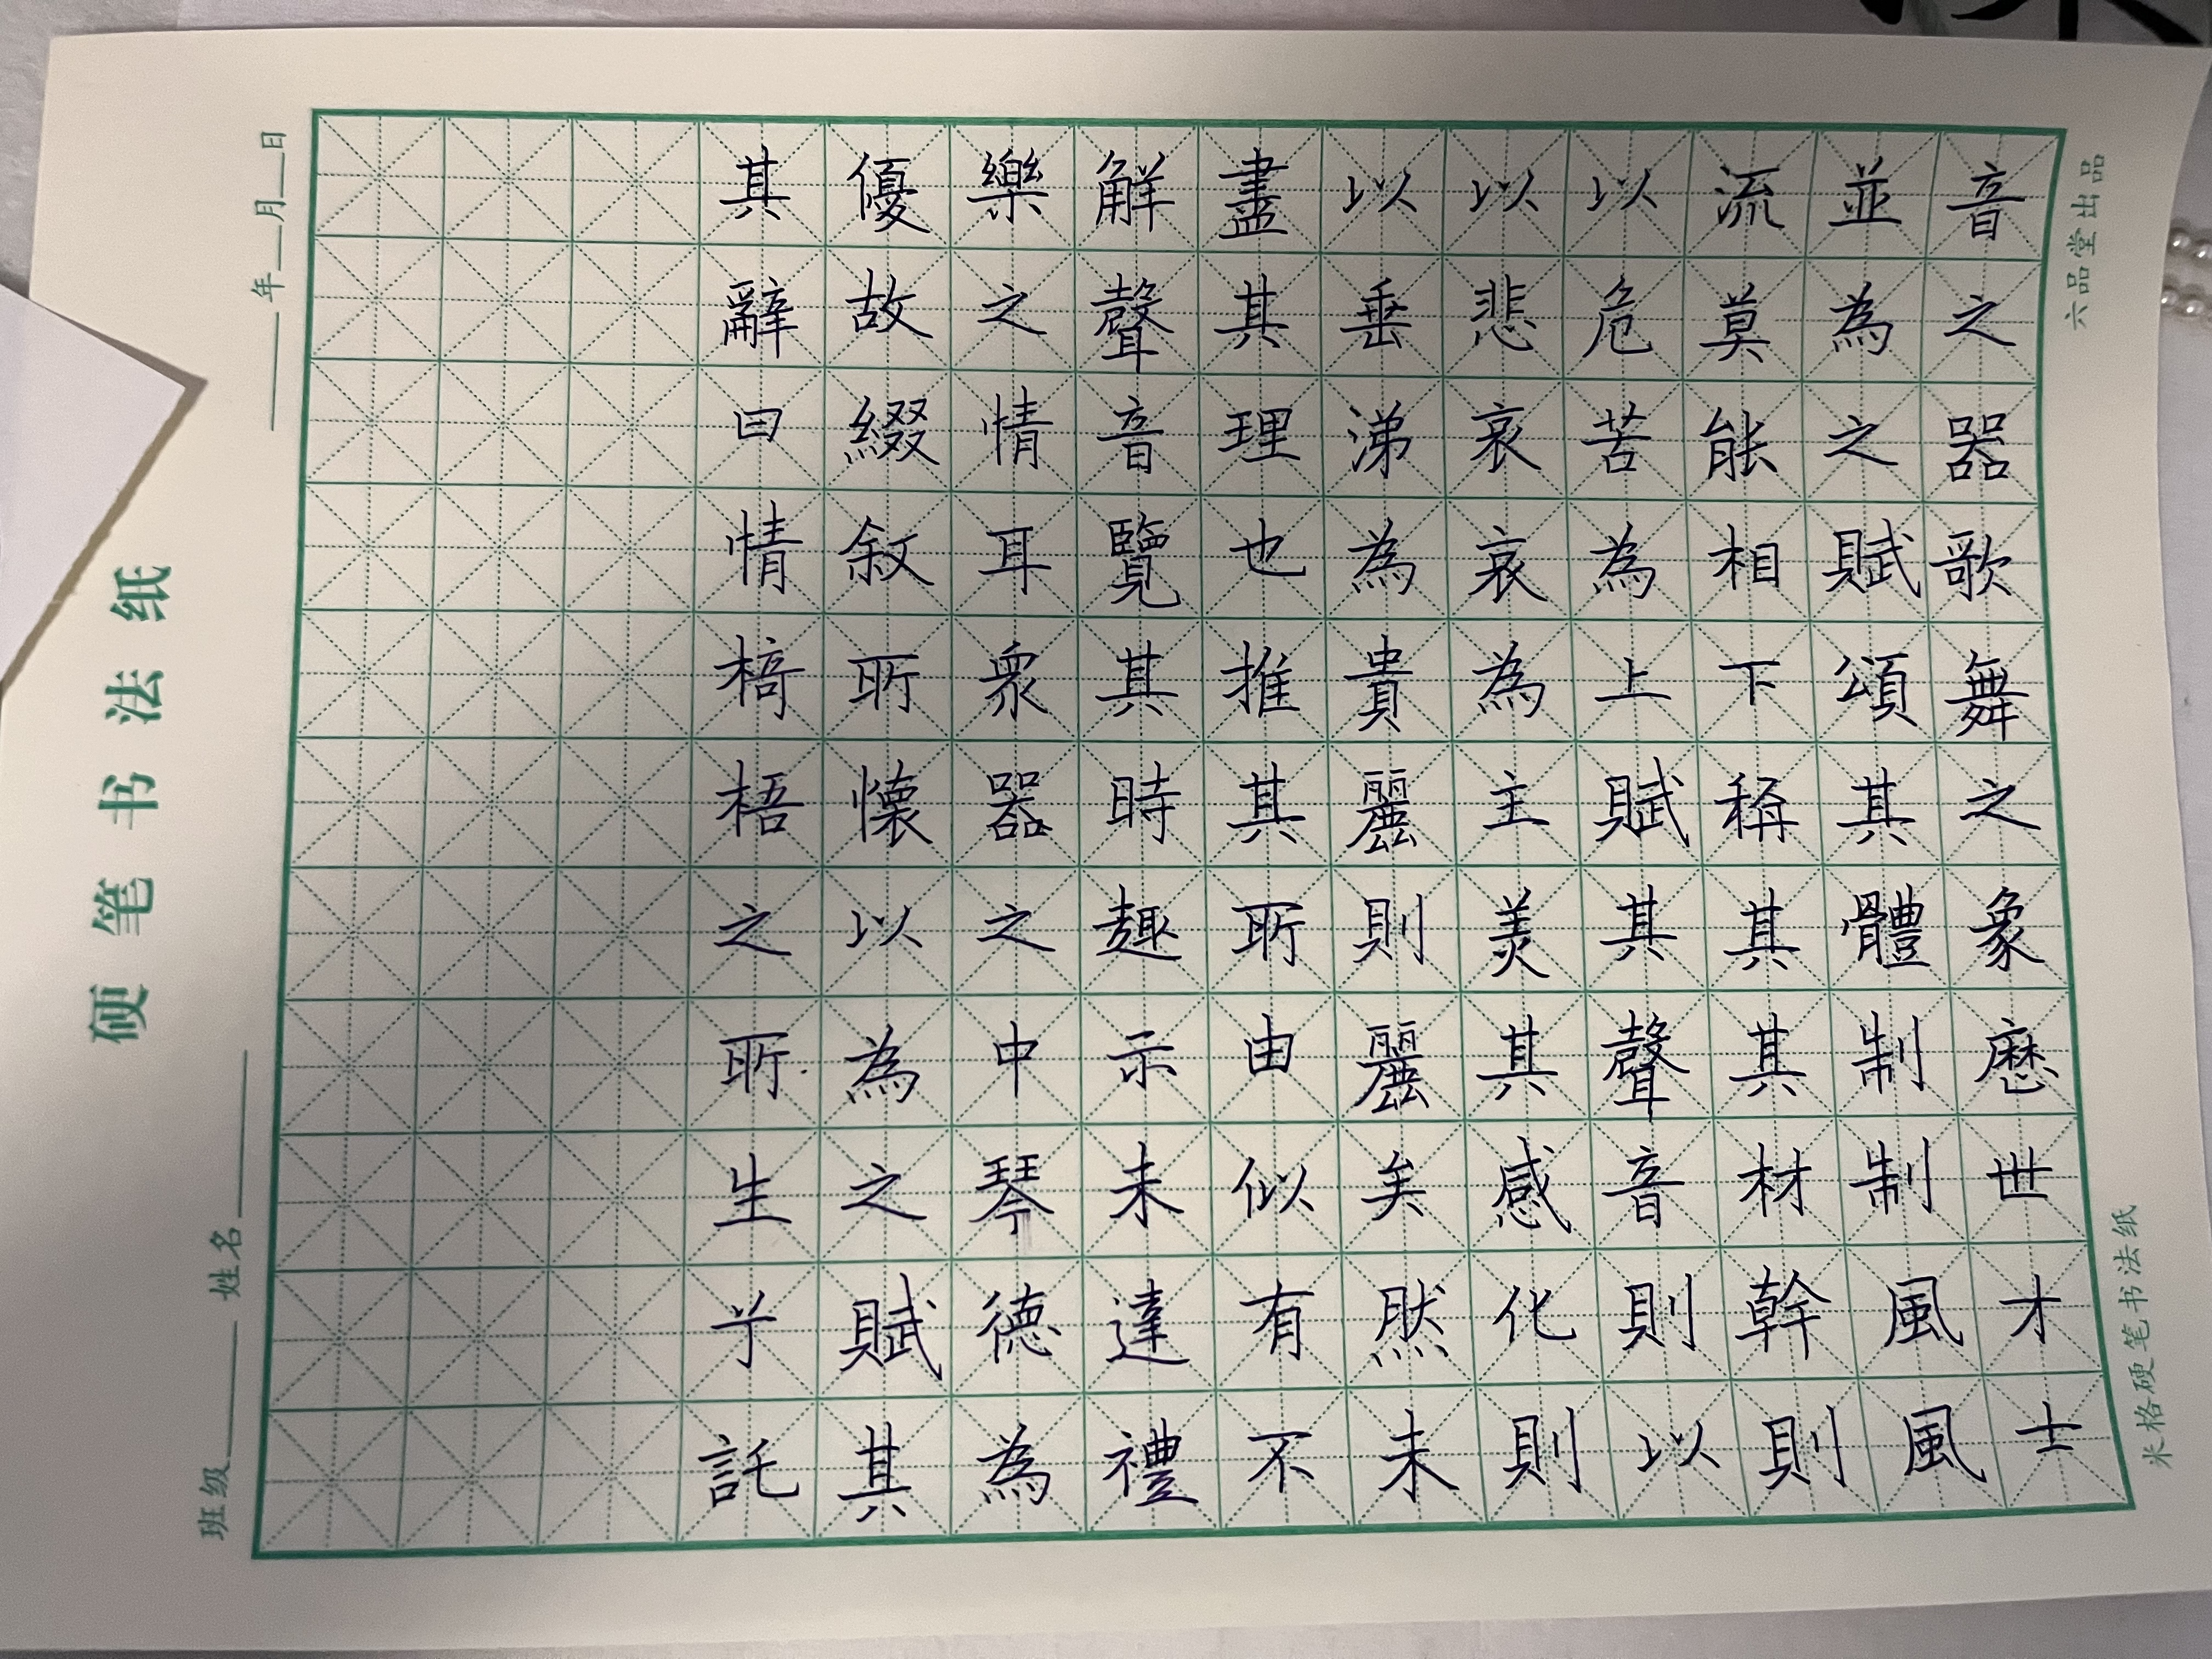 硬笔书法纸
班级 姓名
年 月 日
音之器歌舞之象歷世才士
並為之賦頌其體制制風風
流莫能相下稱其其材幹則
以危苦為上賦其聲音則以
以悲哀哀為主美其感化則
以垂涕為貴麗則麗矣然未
盡其理也推其所由似有不
解聲音覽其時趣亦未達禮
樂之情耳眾器之中琴德為
優故綴敘所懷以為之賦其
其辭曰情椅梧之所生兮託
米格硬笔书法纸
六品堂出品